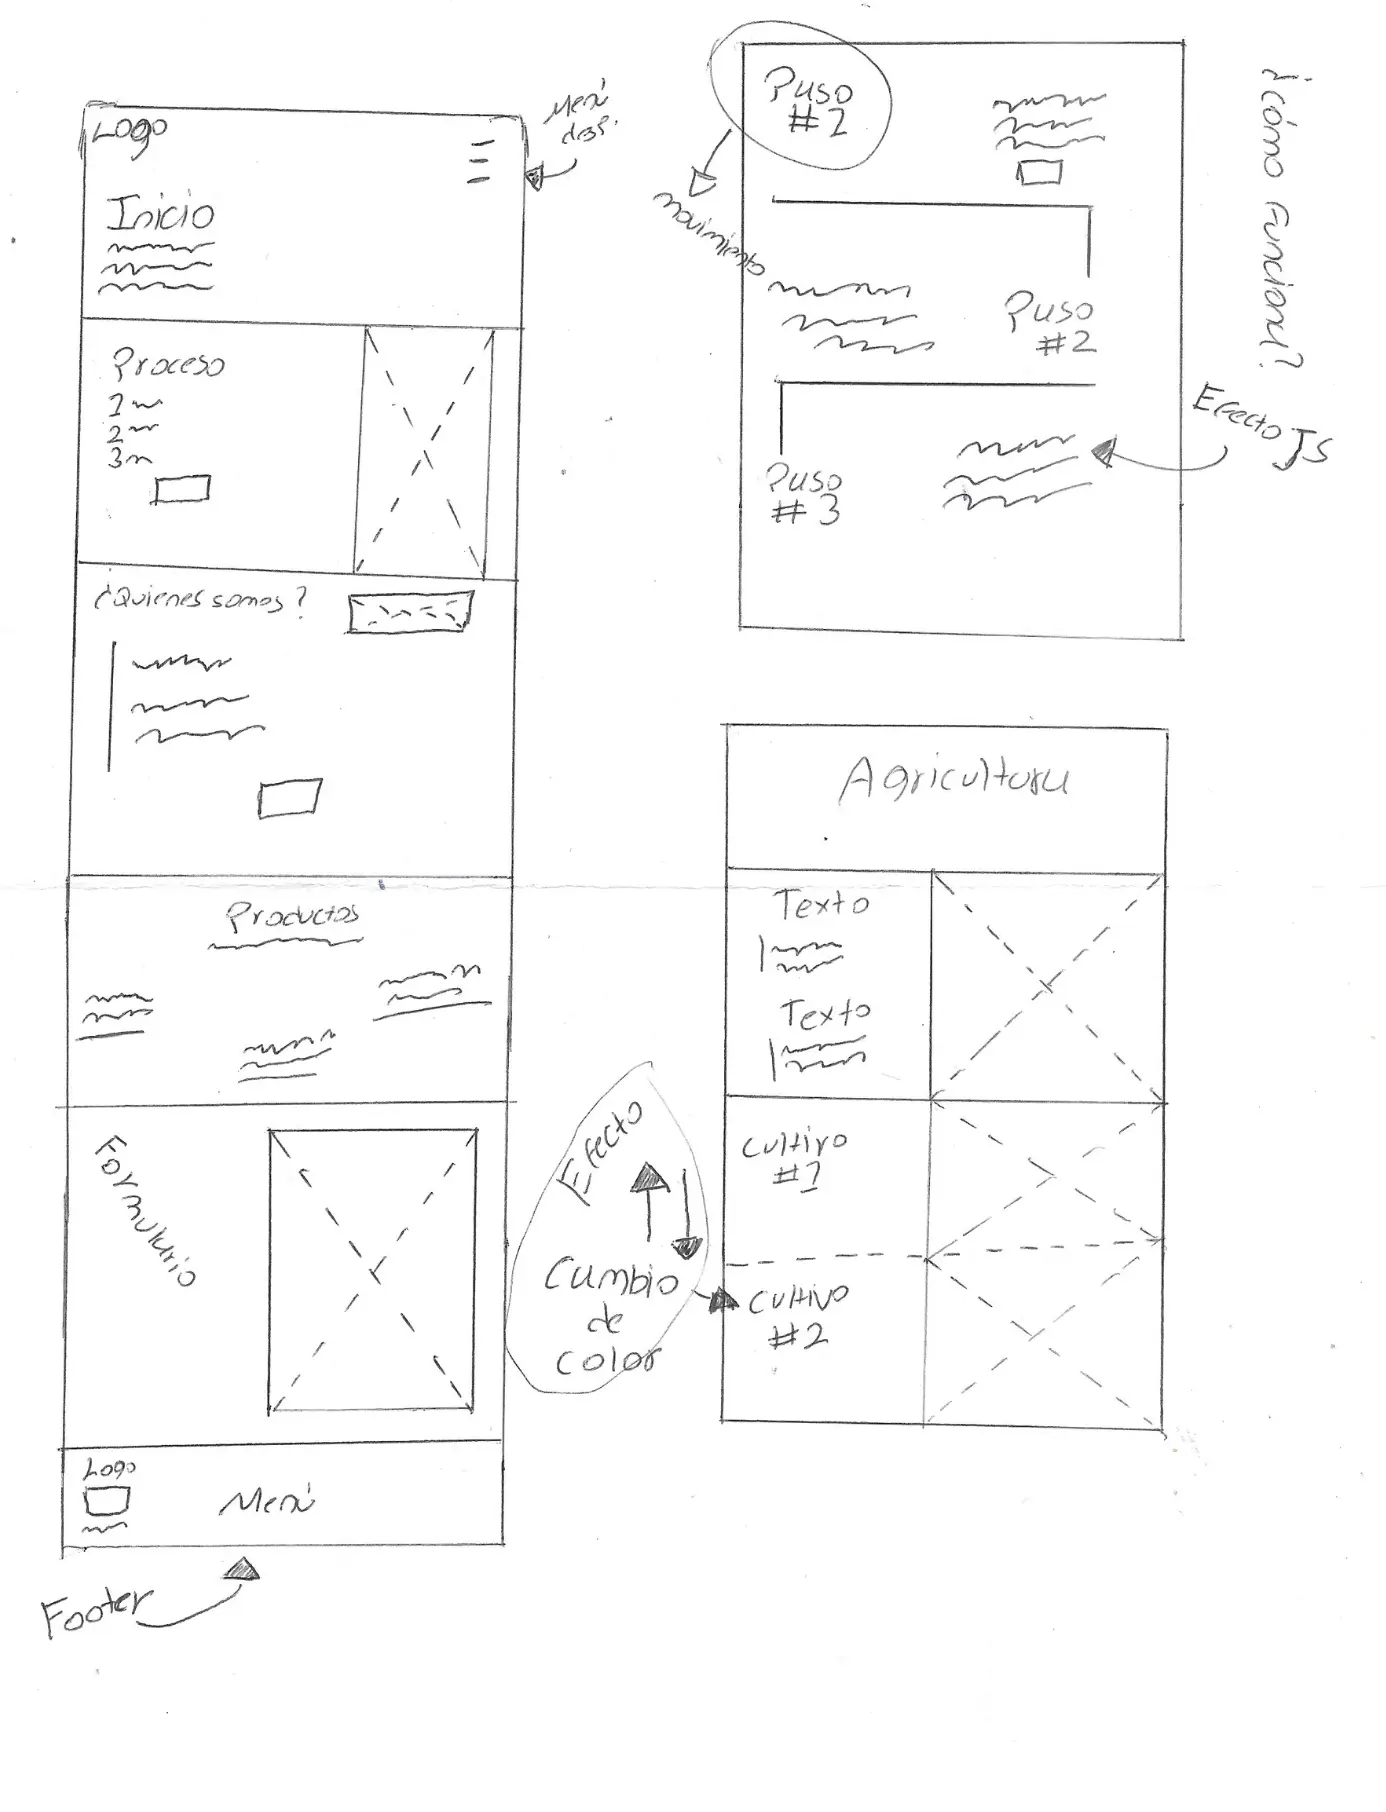 Logo
Menú
desp.
Inicio
Proceso
1
2
3
¿Quienes somos?
Productos
Formulario
Logo
Menú
Footer
¿Cómo Funciona?
Paso
#2
movimiento
Paso
#2
Efecto JS
Paso
#3
Agricultura
Texto
Texto
Cultivo
#1
Cultivo
#2
Efecto
Cambio
de
color